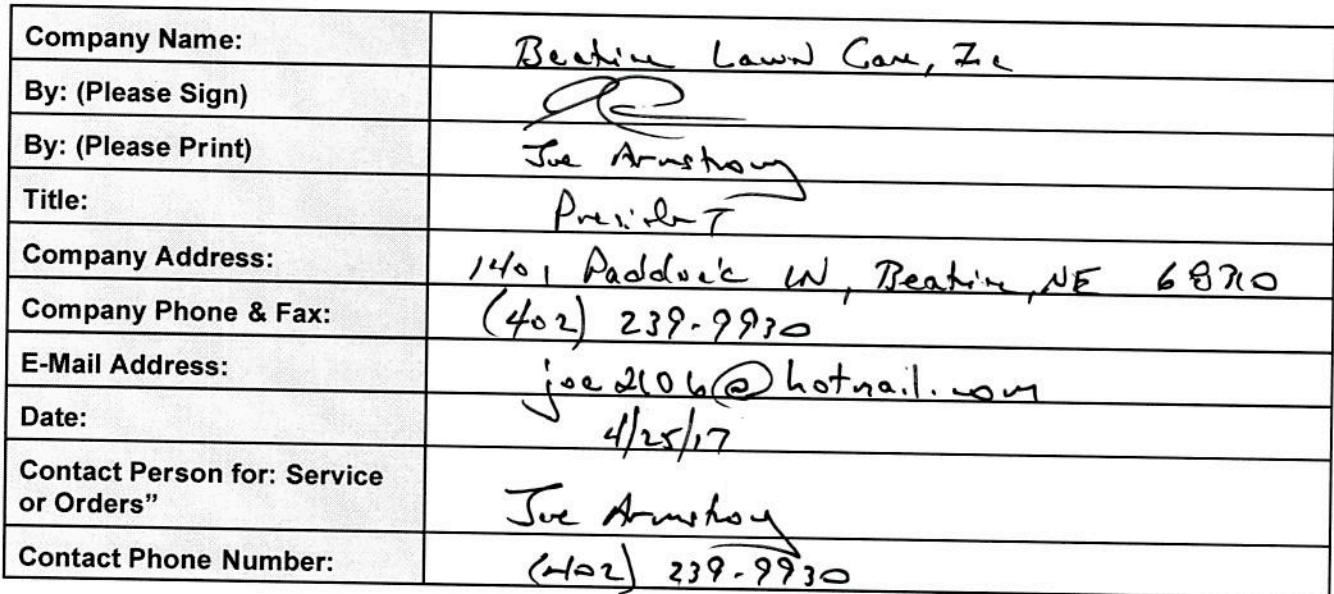 Company Name: Beatrice Lawn Care, Inc
By: (Please Sign)
By: (Please Print) Joe Armstrong
Title: President
Company Address: 1401 Paddock LN, Beatrice, NE 68310
Company Phone & Fax: (402) 239-9930
E-Mail Address: joe2106@hotmail.com
Date: 4/25/17
Contact Person for: Service
or Orders” Joe Armstrong
Contact Phone Number: (402) 239-9930